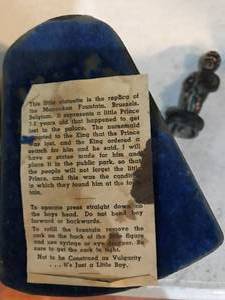 This little statuette is the replica of
the Manneken Fountain, Brussels,
Belgium. It represents a little Prince
years old that happened to get
lost in the palace. The nursemaid
reported to the King that the Prince
was lost, and the King ordered a
search for him and he said, I will
have a statue made for him and
place it in the public park, so that
the people will not forget the little
Prince, and this was the condition
in which they found him at the
To operate press straight down on
the boys head. Do not bend boy
forward or backwards.
To refill the fountain remove the
cork on the back of the little figure
and use syringe or eye dropper. Be
sure to get the cork in tight.
Not to be Construed as Vulgarity
. . . We Just a Little Boy.